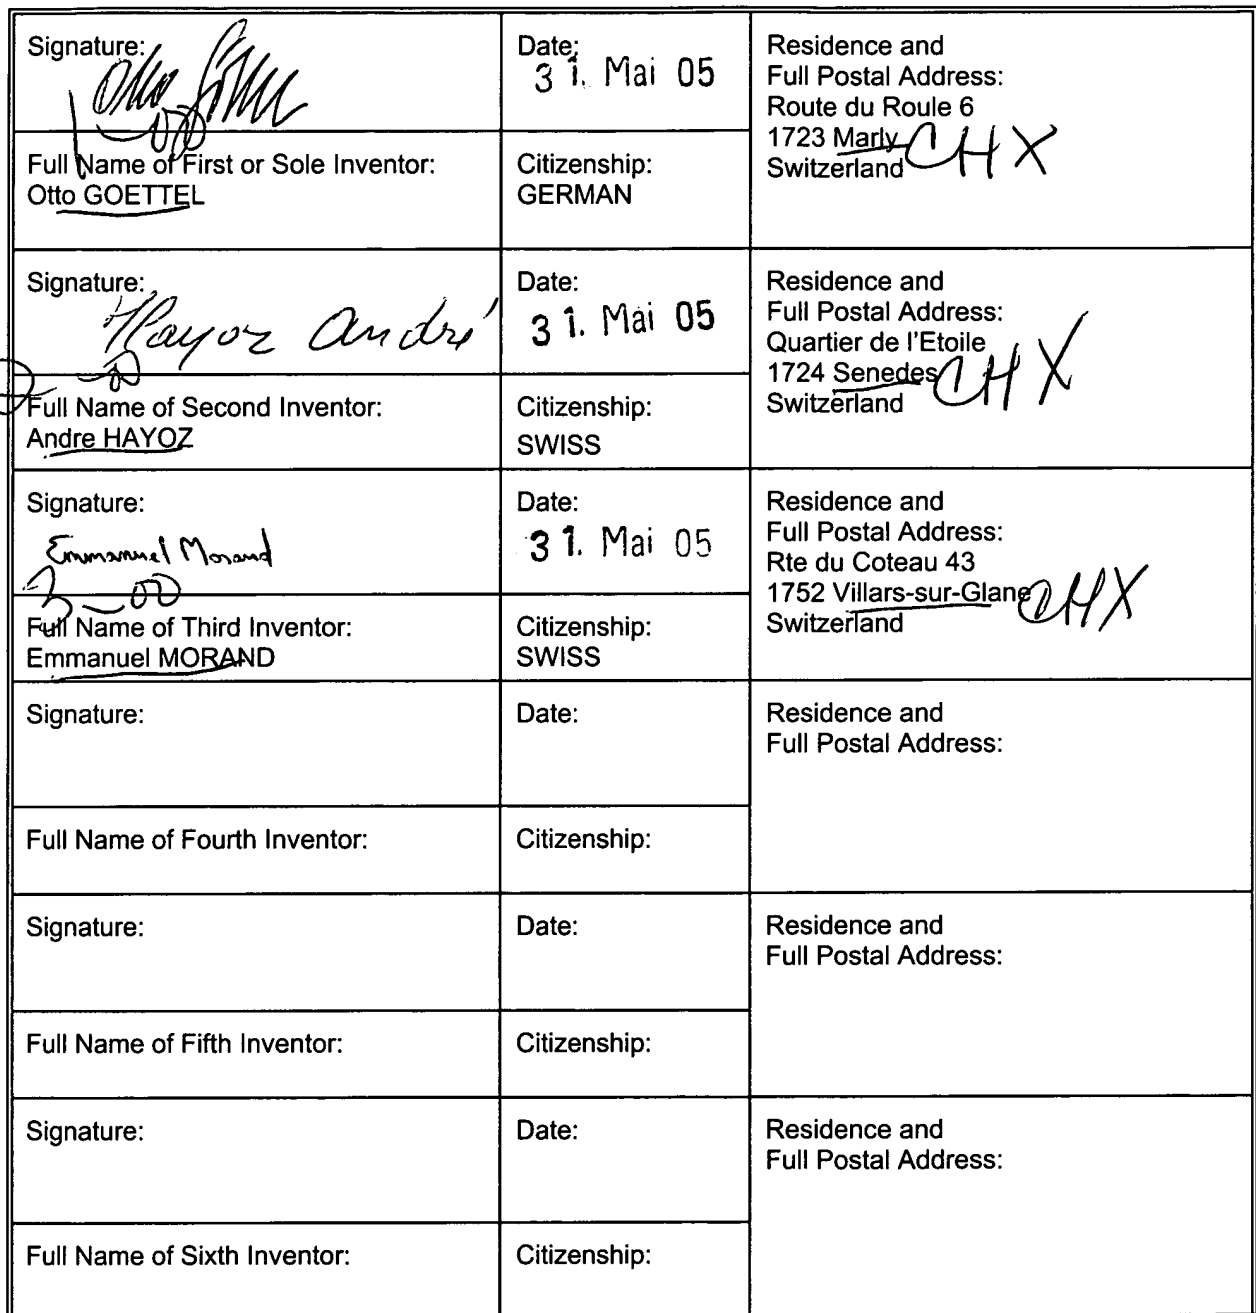 Signature:
Otto Göttel
1-00
Date:
31. Mai 05
Residence and
Full Postal Address:
Route du Roule 6
1723 Marly CHX
Switzerland
Full Name of First or Sole Inventor:
Otto GOETTEL
Citizenship:
GERMAN
Signature:
Hayoz André
2-00
Date:
31. Mai 05
Residence and
Full Postal Address:
Quartier de l'Etoile
1724 Senedes CHX
Switzerland
Full Name of Second Inventor:
Andre HAYOZ
Citizenship:
SWISS
Signature:
Emmanuel Morand
3-00
Date:
31. Mai 05
Residence and
Full Postal Address:
Rte du Coteau 43
1752 Villars-sur-Glane CHX
Switzerland
Full Name of Third Inventor:
Emmanuel MORAND
Citizenship:
SWISS
Signature:
Date:
Residence and
Full Postal Address:
Full Name of Fourth Inventor:
Citizenship:
Signature:
Date:
Residence and
Full Postal Address:
Full Name of Fifth Inventor:
Citizenship:
Signature:
Date:
Residence and
Full Postal Address:
Full Name of Sixth Inventor:
Citizenship: